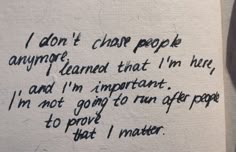 I don't chase people
anymore.
I learned that I'm here,
and I'm important.
I'm not going to run after people
to prove
that I matter.